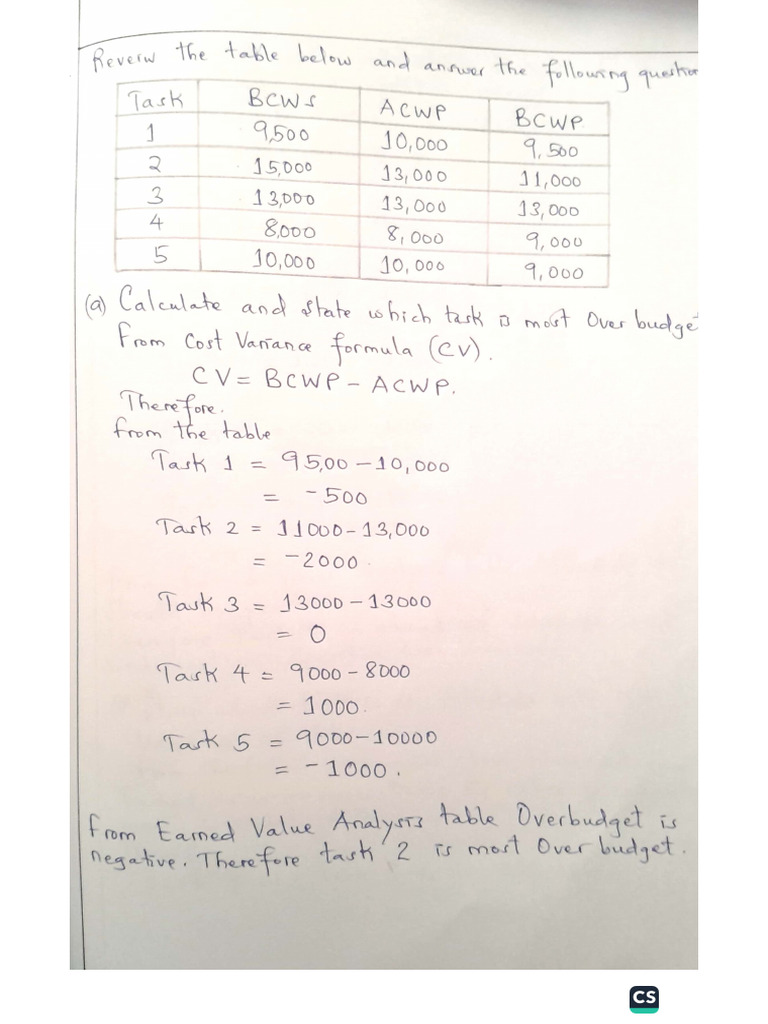 Reveiw the table below and answer the following question
Task BCWS ACWP BCWP
1 9,500 10,000 9,500
2 15,000 13,000 11,000
3 13,000 13,000 13,000
4 8,000 8,000 9,000
5 10,000 10,000 9,000
(a) Calculate and state which task is most Over budge
From Cost Variance formula (CV).
CV = BCWP - ACWP.
Therefore.
from the table
Task 1 = 95,00 - 10,000
= -500
Task 2 = 11000 - 13,000
= -2000
Task 3 = 13000 - 13000
= 0
Task 4 = 9000 - 8000
= 1000
Task 5 = 9000 - 10000
= -1000.
From Earned Value Analysis table Overbudget is
negative. Therefore task 2 is most Over budget.
CS